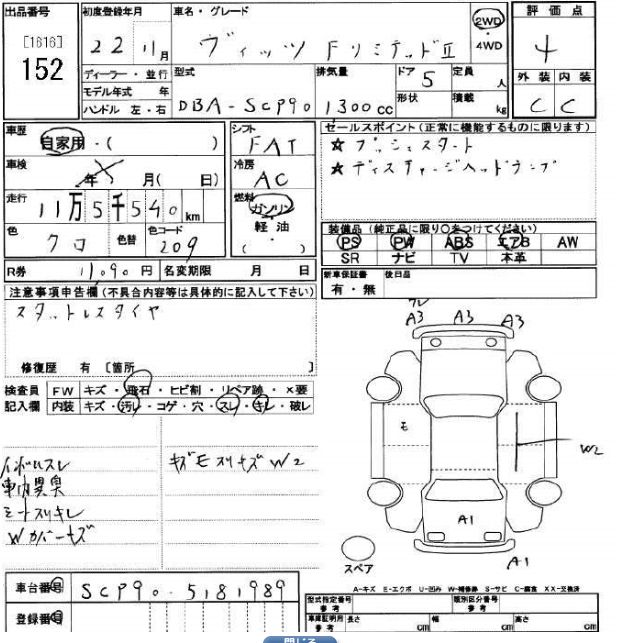 出品番号 初度登録年月 車名・グレード 評価点
[1616]
152
22 11月 ヴィッツ FリミテッドⅡ 2WD ・ 4WD 4
ディーラー・並行 型式 排気量 ドア 定員 外装 内装
モデル年式 年 5 人
ハンドル 左・右 DBA-SCP90 1300cc 形状 積載 kg C C
車歴 自家用・( ) シフト FAT セールスポイント(正常に機能するものに限ります)
☆ プッシュスタート
車検 年 月( 日) 冷房 AC ★ ディスチャージヘッドランプ
走行 11万5千540km 燃料 ガソリン
軽油
・
( )
色 クロ 色替 色コード 209 装備品(純正品に限り○をつけてください)
PS PW ABS エアB AW
SR ナビ TV 本革
R券 11,090円 名変期限 月 日 新車保証書 後日品
有・無
注意事項申告欄(不具合内容等は具体的に記入して下さい)
スタットレスタイヤ
A3 A3 A3
修復歴 有 〔箇所 〕
検査員 FW キズ・飛石・ヒビ割・リペア跡・×要
記入欄 内装 キズ・汚レ・コゲ・穴・スレ・キレ・破レ
E
W2
キズモスリキズ W2
車内異臭
シートスリキレ
Wカバーキズ
A1
スペア
A1
A-キズ E-エクボ U-凹み W-補修跡 S-サビ C-腐食 XX-交換済
車台番号 SCP90-5181989 型式指定番号 参考 類別区分番号 参考
登録番号 車庫証明用 参考 長さ cm 幅 cm 高さ cm
閉じる